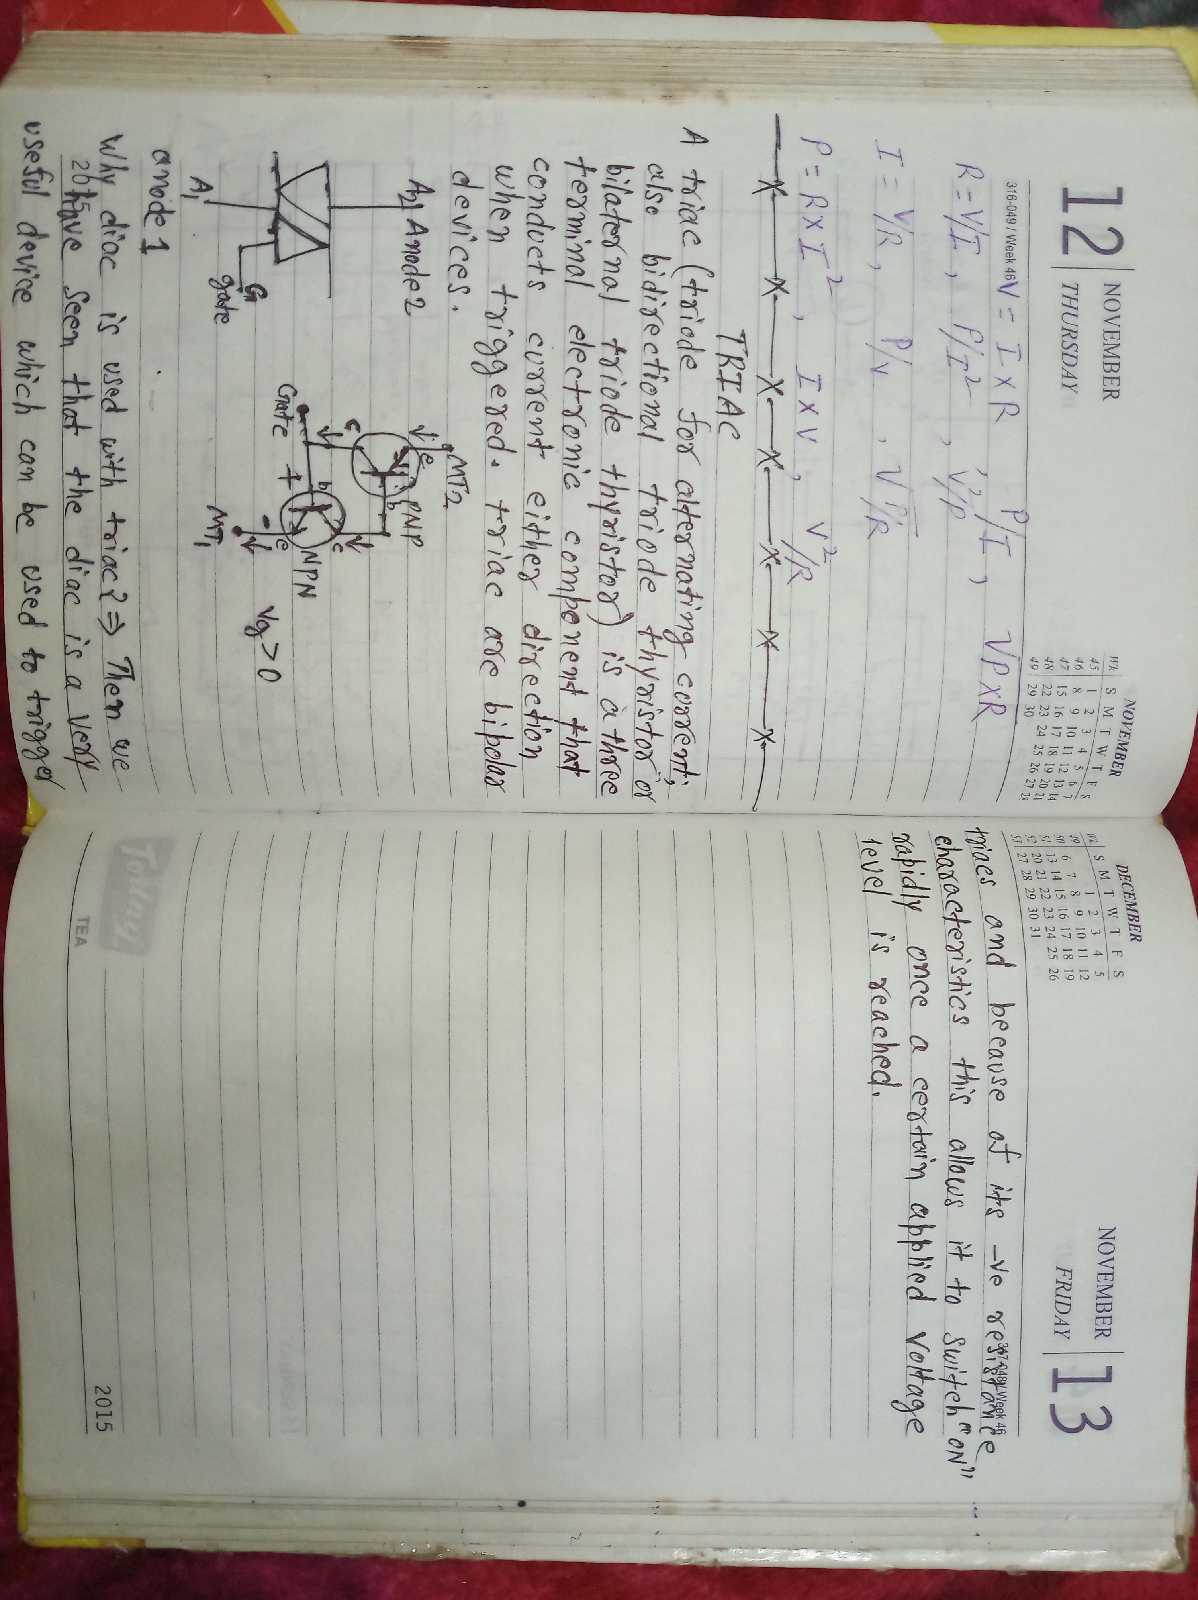 12 NOVEMBER
THURSDAY
316-049 / Week 46
NOVEMBER
WK S M T W T F S
45 1 2 3 4 5 6 7
46 8 9 10 11 12 13 14
47 15 16 17 18 19 20 21
48 22 23 24 25 26 27 28
49 29 30
V = I × R P/I, √P×R
R = V/I, P/I², V²/P
I = V/R, P/V, √P/R
P = R × I², I × V, V²/R
TRIAC
A triac (triode for alternating current;
also bidirectional triode thyristor or
bilaternal triode thyristor) is a three
terminal electronic component that
conducts current either direction
when triggered. triac are bipolar
devices.
A2 Anode 2
G
gate
A1
anode 1
MT2
e
PNP
b
c
c
b
NPN
e
Gate +
-
MT1
Vg > 0
Why diac is used with triac? ⇒ Then we
have seen that the diac is a very
2015
useful device which can be used to trigger
DECEMBER
WK S M T W T F S
1 2 3 4 5
6 7 8 9 10 11 12
51 13 14 15 16 17 18 19
52 20 21 22 23 24 25 26
53 27 28 29 30 31
NOVEMBER 13
FRIDAY
Week 46
triacs and because of its -ve resistance
characteristics this allows it to switch "ON"
rapidly once a certain applied voltage
level is reached.
TEA
2015